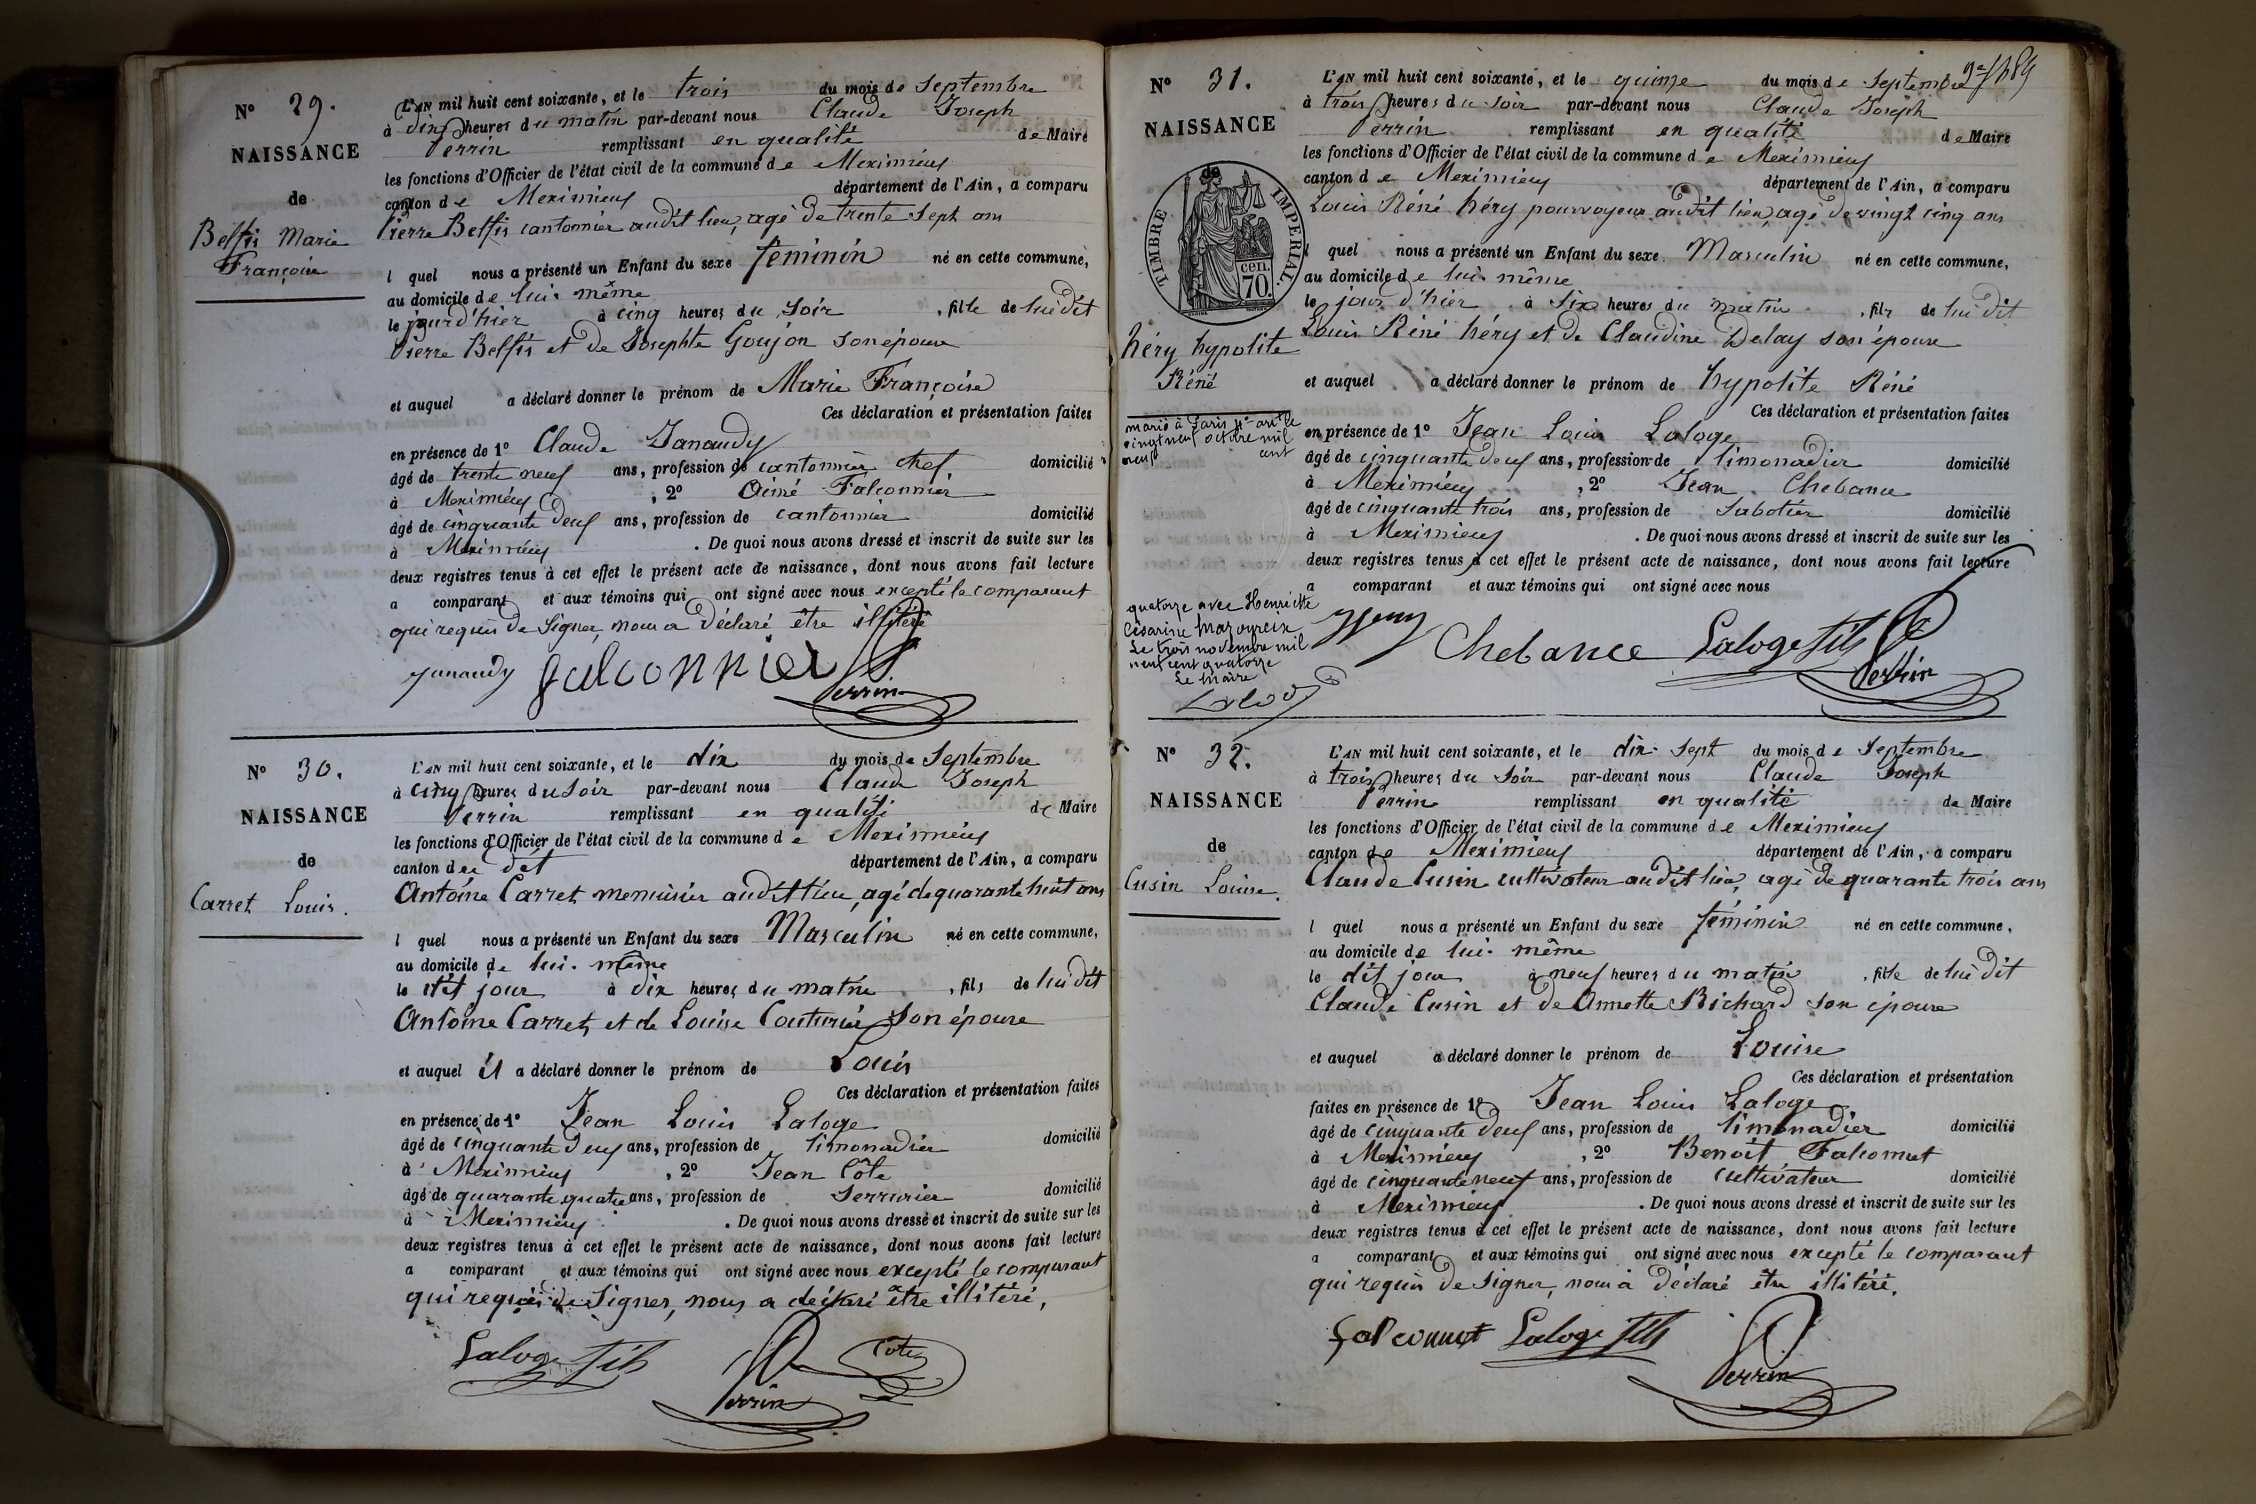 N° 29.
NAISSANCE
de
Belfis Marie
Françoise
L'AN mil huit cent soixante, et le trois du mois de Septembre
à dix heures du matin par-devant nous Claude Joseph
Perrin remplissant en qualité de Maire
les fonctions d'Officier de l'état civil de la commune de Meximieux
canton de Meximieux département de l'Ain, a comparu
Pierre Belfis cantonnier audit lieu, agé de trente sept ans
l quel nous a présenté un Enfant du sexe féminin né en cette commune,
au domicile de lui-même
le jour d'hier à cinq heures du soir, fille de lui dit
Pierre Belfis et de Josephte Goujon son épouse
et auquel a déclaré donner le prénom de Marie Françoise
Ces déclaration et présentation faites
en présence de 1° Claude Janaudy
âgé de trente neuf ans, profession de cantonnier chef domicilié
à Meximieux, 2° Aimé Falconnier
âgé de cinquante deux ans, profession de cantonnier domicilié
à Meximieux. De quoi nous avons dressé et inscrit de suite sur les
deux registres tenus à cet effet le présent acte de naissance, dont nous avons fait lecture
a comparant et aux témoins qui ont signé avec nous excepté le comparant
qui requis de signer, nous a déclaré être illitéré
Janaudy falconnier Perrin
N° 30.
NAISSANCE
de
Carret Louis.
L'AN mil huit cent soixante, et le dix du mois de Septembre
à cinq heures du soir par-devant nous Claude Joseph
Perrin remplissant en qualité de Maire
les fonctions d'Officier de l'état civil de la commune de Meximieux
canton du dit département de l'Ain, a comparu
Antoine Carret menuisier audit lieu, agé de quarante huit ans
l quel nous a présenté un Enfant du sexe Masculin né en cette commune,
au domicile de lui-même
le dit jour à dix heures du matin, fils de lui dit
Antoine Carret et de Louise Couturier son épouse
et auquel il a déclaré donner le prénom de Louis
Ces déclaration et présentation faites
en présence de 1° Jean Louis Laloge
âgé de cinquante deux ans, profession de limonadier domicilié
à Meximieux, 2° Jean Côte
âgé de quarante quatre ans, profession de Serrurier domicilié
à Meximieux. De quoi nous avons dressé et inscrit de suite sur les
deux registres tenus à cet effet le présent acte de naissance, dont nous avons fait lecture
a comparant et aux témoins qui ont signé avec nous excepté le comparant
qui requis de signer, nous a déclaré être illitéré,
Laloge fils Perrin Cote
9e / 1489
N° 31.
NAISSANCE
de
TIMBRE IMPERIAL
cen. 70.
héry hypolite
Réné
marié à Paris 4e arrt le
vingt neuf octobre mil
neuf cent
quatorze avec Henriette
Césarine Mazoyreix
Le trois novembre mil
neuf cent quatorze
Le Maire
L'AN mil huit cent soixante, et le quinze du mois de Septembre
à trois heures du soir par-devant nous Claude Joseph
Perrin remplissant en qualité de Maire
les fonctions d'Officier de l'état civil de la commune de Meximieux
canton de Meximieux département de l'Ain, a comparu
Louis Réné héry pourvoyeur audit lieu, agé de vingt cinq ans
l quel nous a présenté un Enfant du sexe Masculin né en cette commune,
au domicile de lui-même
le jour d'hier à six heures du matin, fils de lui dit
Louis Réné héry et de Claudine Delay son épouse
et auquel a déclaré donner le prénom de hypolite Réné
Ces déclaration et présentation faites
en présence de 1° Jean Louis Laloge
âgé de cinquante deux ans, profession de limonadier domicilié
à Meximieux, 2° Jean Chebance
âgé de cinquante trois ans, profession de Sabotier domicilié
à Meximieux. De quoi nous avons dressé et inscrit de suite sur les
deux registres tenus à cet effet le présent acte de naissance, dont nous avons fait lecture
a comparant et aux témoins qui ont signé avec nous
Chebance Laloge fils Perrin
N° 32.
NAISSANCE
de
Cusin Louise.
L'AN mil huit cent soixante, et le dix-sept du mois de Septembre
à trois heures du soir par-devant nous Claude Joseph
Perrin remplissant en qualité de Maire
les fonctions d'Officier de l'état civil de la commune de Meximieux
canton de Meximieux département de l'Ain, a comparu
Claude Cusin cultivateur audit lieu, agé de quarante trois ans
l quel nous a présenté un Enfant du sexe féminin né en cette commune,
au domicile de lui-même
le dit jour à neuf heures du matin, fille de lui dit
Claude Cusin et de Annette Richard son épouse
et auquel a déclaré donner le prénom de Louise
Ces déclaration et présentation
faites en présence de 1° Jean Louis Laloge
âgé de cinquante deux ans, profession de limonadier domicilié
à Meximieux, 2° Benoit Falconnet
âgé de cinquante neuf ans, profession de cultivateur domicilié
à Meximieux. De quoi nous avons dressé et inscrit de suite sur les
deux registres tenus à cet effet le présent acte de naissance, dont nous avons fait lecture
a comparant et aux témoins qui ont signé avec nous excepté le comparant
qui requis de signer, nous a déclaré être illitéré.
falconnet Laloge fils Perrin